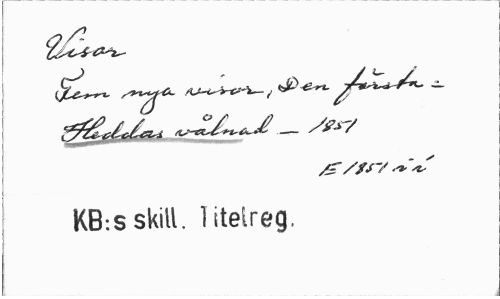 Visor
Fem nya visor, Den första =
Heddas vålnad — 1851
E 1851 ii
KB:s skill. Titelreg.